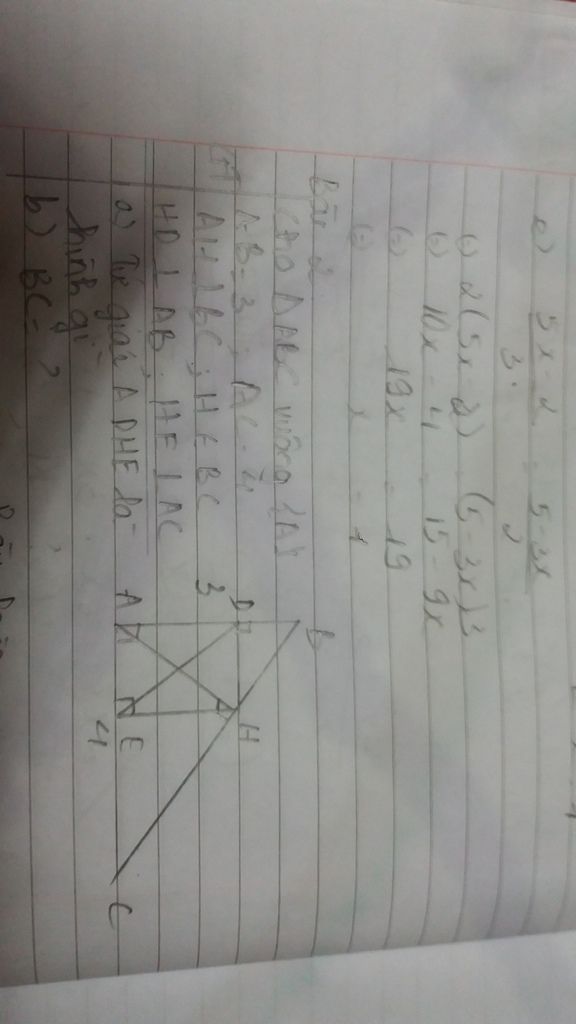 c) 5x-2 / 3 = 5-3x / 2
(=) 2(5x-2) = (5-3x)3
(=) 10x-4 = 15-9x
(=) 19x = 19
(=) x = 1
Bài 2
Cho ΔABC vuông (A)
GT AB=3; AC=4
AH⊥BC; H∈BC
HD⊥AB; HE⊥AC
a) Tứ giác ADHE là
hình gì
b) BC= ?
B
D
H
3
A
E
4
C